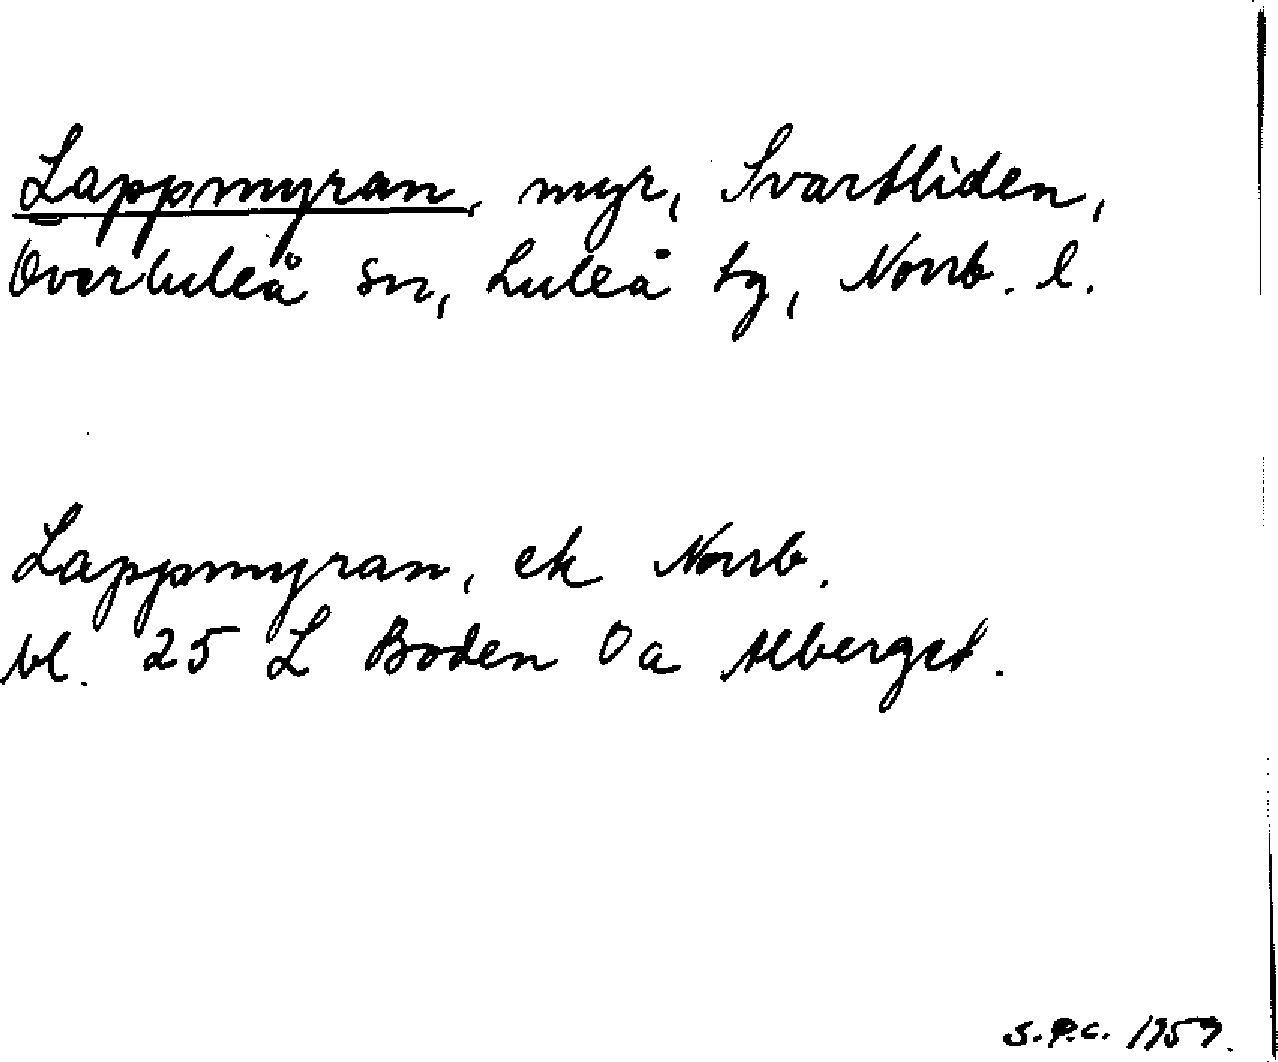 Lappmyran, myr, Svartliden,
Överluleå sn, Luleå tg, Norrb. l.
Lappmyran, ek Norrb.
bl. 25 L Boden Oa Alberget.
S.P.C. 1959.